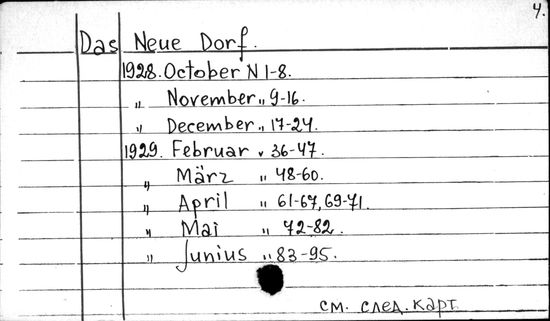 4.
Das Neue Dorf.
1928. October N 1-8.
„ November „ 9-16.
„ December „ 17-24.
1929. Februar „ 36-47.
„ März „ 48-60.
„ April „ 61-67, 69-71.
„ Mai „ 72-82.
„ Junius „ 83-95.
см. след. карт.